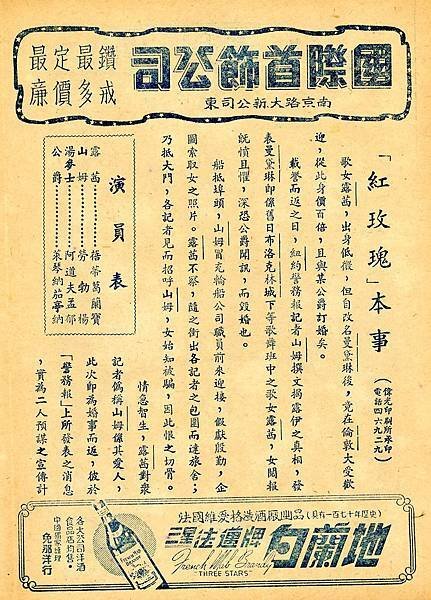 國際首飾公司
南京路大新公司東
鑽戒
最多
定價
最廉
「紅玫瑰」本事
(偉光印刷所承印
電話四六九二九)
歌女露茜，出身低微，但自改名曼黛琳後，竟在倫敦大受歡
迎，從此身價百倍，且與某公爵訂婚矣。
載譽而返之日，紐約警務報記者山姆撰文揭露伊之真相，發
表曼黛琳即係舊日布洛克林城下等歌舞班中之歌女露茜，女閱報
既憤且懼，深恐公爵聞訊，而毀婚也。
船抵埠頭，山姆冒充輪船公司職員前來迎接，假獻殷勤，企
圖索取女之照片。露茜不察，隨之衝出各記者之包圍而達旅舍；
乃抵大門，各記者見而招呼山姆，女始知被騙，因此恨之切骨。
情急智生，露茜對眾
記者偽稱山姆係其愛人，
此次即為婚事而返，彼於
「警務報」上所發表之消息
，實為二人預謀之宣傳計
演員表
露茜………蓓蒂葛蘭寶
山姆………勞勃楊
湯麥士………阿道夫孟郁
公爵………萊琴納茄亭納
法國維愛格造酒廠出品(具有一百七十年歷史)
白蘭地
牌僊法星三
French Club Brandy
"THREE STARS"
各大公司洋酒
食品店均售
中國獨家經理
免那洋行